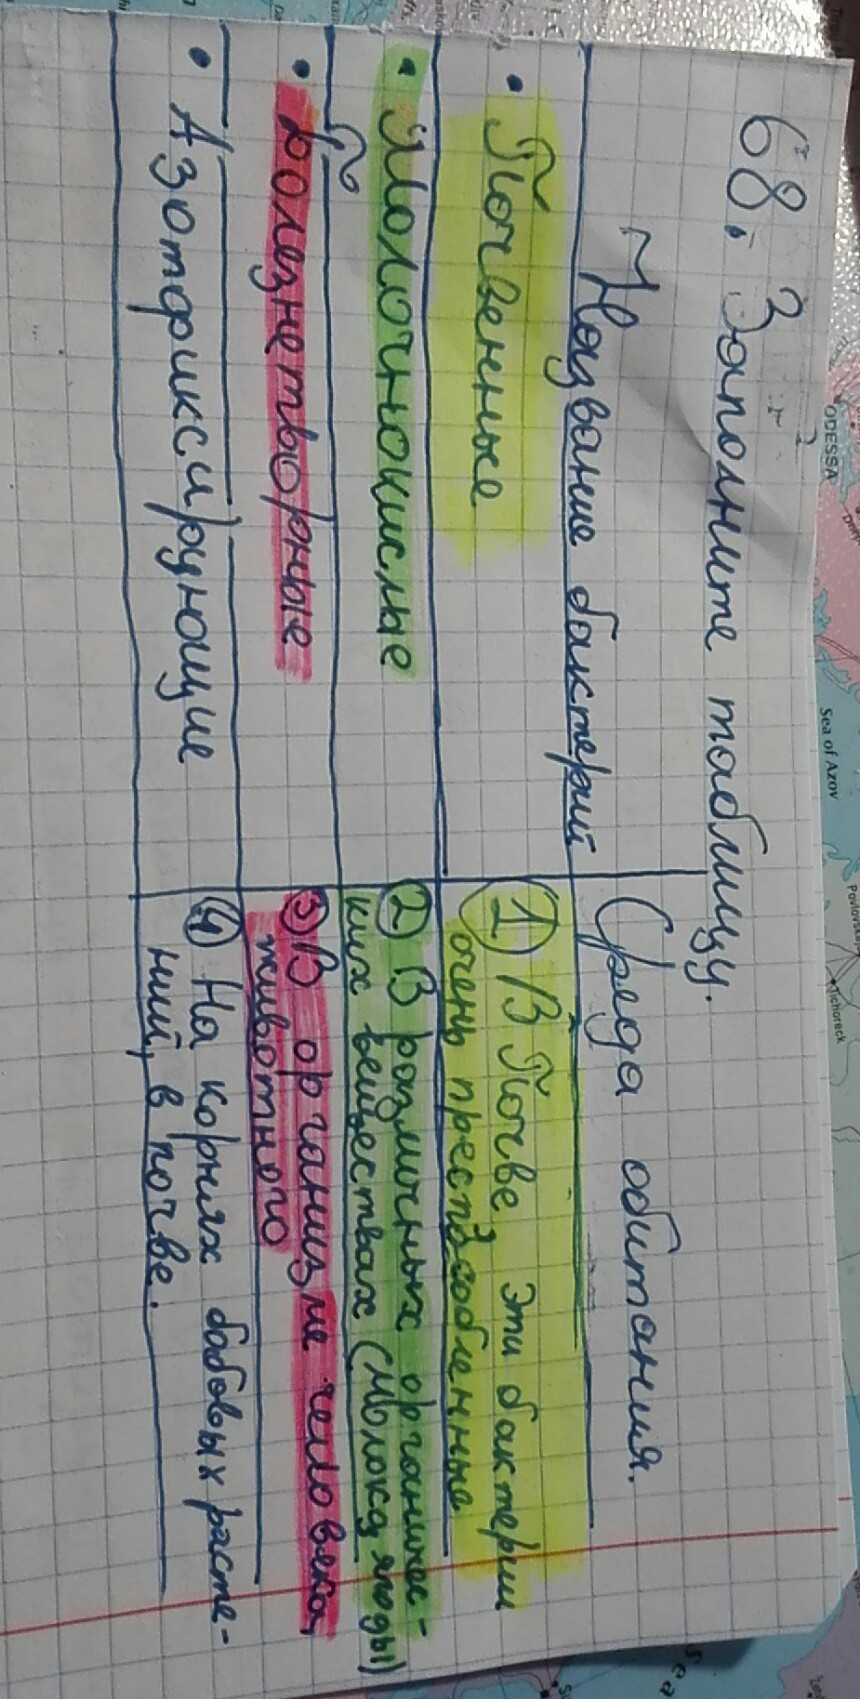 68. Заполните таблицу.
Название бактерий
Среда обитания.
• Почвенные
1) В Почве эти бактерии
очень преспособленные
• Молочнокислые
2) В различных органичес-
ких веществах (молока, ягоды)
• Болезнетворные
3) В организме человека,
животного
• Азотфиксирующие
4) На корнях бобовых расте-
ний, в почве.
ODESSA
Sea of Azov
Tichoreck
Sea